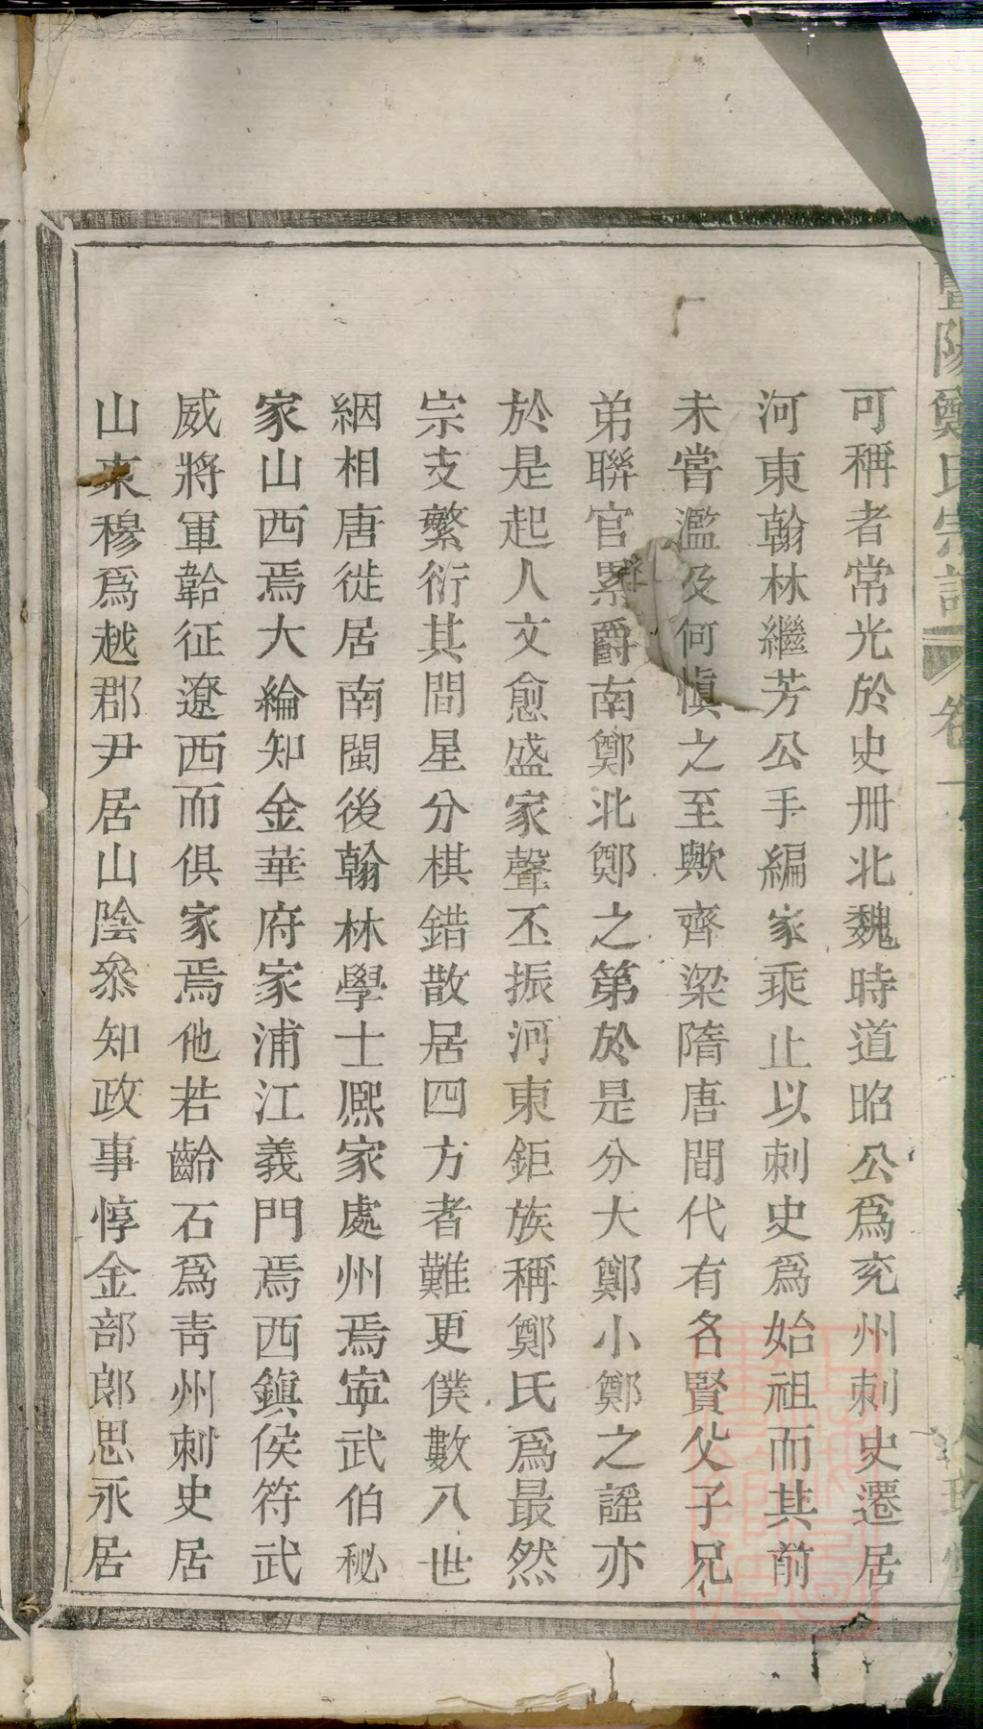 暨陽鄭氏宗譜 卷一
可稱者常光於史册北魏時道昭公爲兖州刺史遷居
河東翰林繼芳公手編家乘止以刺史爲始祖而其前
未嘗濫及何愼之至歟齊梁隋唐間代有名賢父子兄
弟聯官累爵南鄭北鄭之第於是分大鄭小鄭之謡亦
於是起人文愈盛家聲丕振河東鉅族稱鄭氏爲最然
宗支蘩衍其間星分棋錯散居四方者難更僕數八世
絪相唐徙居南閩後翰林學士凞家處州焉寕武伯秘
家山西焉大綸知金華府家浦江義門焉西鎭侯符武
威將軍韐征遼西而俱家焉他若齡石爲靑州刺史居
山東穆爲越郡尹居山陰叅知政事惇金部郎思永居